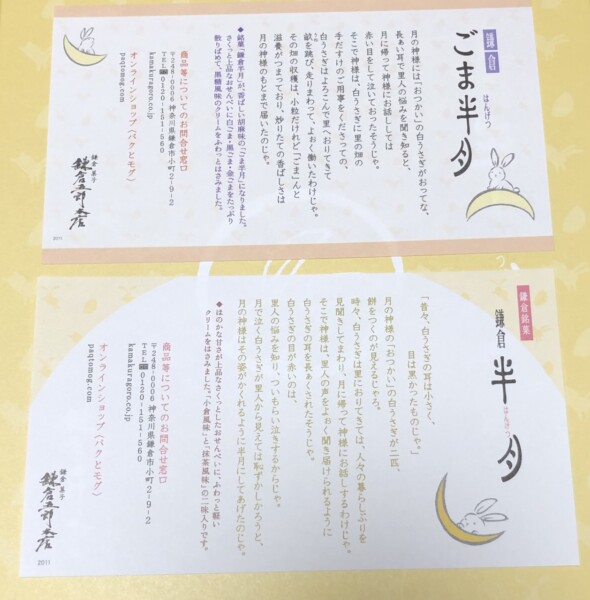 鎌倉
ごま半月
はんげつ
月の神様には「おつかい」の白うさぎがおってな、
長ぁい耳で里人の悩みを聞き知ると、
月に帰って神様にお話ししては
赤い目をして泣いておったそうじゃ。
そこで神様は、白うさぎに里の畑の
手だすけのご用事をくださっての、
白うさぎはよろこんで里へおりてきて
畝を跳び、走りまわって、よぉく働いたわけじゃ。
その畑の収穫は、小粒だけれど「ごま」んと
滋養がつまっており、炒りたての香ばしさは
月の神様のもとまで届いたのじゃ。
◆銘菓「鎌倉半月」が、香ばしい胡麻味の「ごま半月」になりました。
さくっと上品なおせんべいに白ごま・黒ごま・金ごまをたっぷり
散りばめて、黒糖風味のクリームをふわっとはさみました。
商品等についてのお問合せ窓口
〒248-0006 神奈川県鎌倉市小町2-9-2
TEL 0120-151-560
kamakuragoro.co.jp
オンラインショップ〈パクとモグ〉
paqtomog.com
鎌倉 菓子
鎌倉五郎本店
2011
鎌倉銘菓
鎌倉
半月
はんげつ
「昔々、白うさぎの耳は小さく、
目は黒かったものじゃ。」
月の神様の「おつかい」の白うさぎが二匹、
餅をつくのが見えるじゃろ。
時々、白うさぎは里におりてきては、人々の暮らしぶりを
見聞きしてまわり、月に帰って神様にお話しするわけじゃ。
そこで神様は、里人の声をよぉく聞き届けられるように
白うさぎの耳を長ぁくされたそうじゃ。
白うさぎの目が赤いのは、
里人の悩みを知り、ついもらい泣きするからじゃ。
月で泣く白うさぎが里人から見えては恥ずかしかろうと、
月の神様はその姿がかくれるように半月にしてあげたのじゃ。
◆ほのかな甘さが上品なさくっとしたおせんべいに、ふわっと軽い
クリームをはさみました。「小倉風味」と「抹茶風味」の二味入りです。
商品等についてのお問合せ窓口
〒248-0006 神奈川県鎌倉市小町2-9-2
TEL 0120-151-560
kamakuragoro.co.jp
オンラインショップ〈パクとモグ〉
paqtomog.com
鎌倉 菓子
鎌倉五郎本店
2011